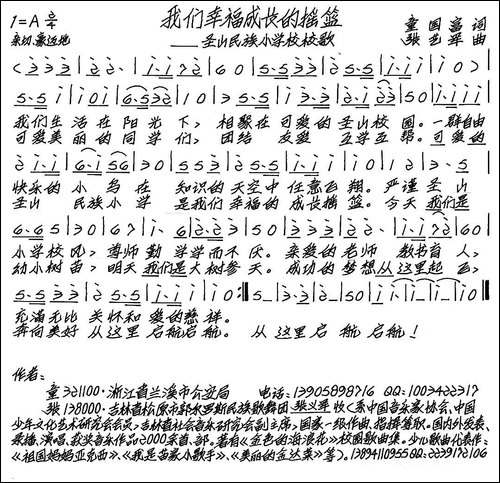 1=A 2/4
我们幸福成长的摇篮
童国富词
亲切、豪迈地
——圣山民族小学校校歌
张艺军曲
我们生活在阳光下,相聚在可爱的圣山校园。一群自由
可爱美丽的同学们,团结友爱互学互帮。可爱的
快乐的小鸟在知识的天空中任意飞翔。严谨圣山
圣山民族小学是我们幸福的成长摇篮。今天我们是
小学校风,尊师勤学学而不厌。亲爱的老师教书育人,
幼小树苗,明天我们是大树参天。成功的梦想从这里起飞,
充满无比关怀和爱的慈祥。
奔向美好从这里启航启航。从这里启航启航!
作者:
童321100·浙江省兰溪市公安局 电话:13905898716 QQ:1003422317
张138000·吉林省松原市郭尔罗斯民族歌舞团 张艺军收<系中国音乐家协会、中国
少年文化艺术研究会会员,吉林省社会音乐研究会副主席,国家一级作曲、指挥等职。国内外发表、
录播、演唱、获奖音乐作品2000余首、部。著有《金色的海浪花》校园歌曲集。少儿歌曲代表作:
《祖国妈妈亚克西》、《我是苗家小歌手》、《美丽的金达莱》等>。13894110955 QQ:2239172106